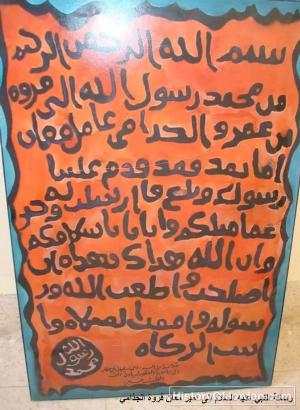 بسم الله الرحمن الرحيم
من محمد رسول الله الى فروه
بن عمرو الجدامى عامل معان
اما بعد فقد قدم علينا
رسولك وبلغ ما ارسلت به وخبر
عما قبلكم واتانا باسلامك
وان الله هداك بهداه ان
اصلحت واطعت الله ور
سوله واقمت الصلاه وا
تيت الزكاه
الله
رسول
محمد
HistoryOfJordan.com
رسالة النبي عليه السلام الى امير معان فروة الجذامي